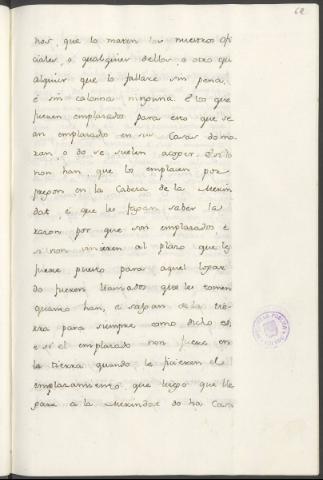 62
hos, que lo maten los nuestros ofi
ciales, o qualquier dellos, o otro qu
alquier que lo fallare sin pena,
é sin calonna ninguna. E los que
fueren emplazados para esto que se
an emplazados en sus Casas do mo
ran, o do se suelen acoger. E si lo
non han, que los emplacen por
pregon en la Cabeza de la Merin
dat, e que les fagan saber la
razon por que son emplazados é
si non vinieren al plazo que les
fuere puesto para aquel logar
do fueren llamados que les tomen
quanto han, e salgan de la tie
rra para siempre como dicho es,
e si el emplazado non fuere en
la tierra quando le ficieren el
emplazamiento, que luego que lle
gare a la Merindat do ha Casa